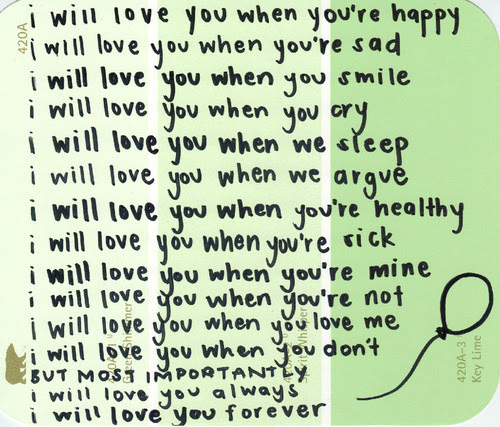 i will love you when you're happy
i will love you when you're sad
i will love you when you smile
i will love you when you cry
i will love you when we sleep
i will love you when we argue
i will love you when you're healthy
i will love you when you're sick
i will love you when you're mine
i will love you when you're not
i will love you when you love me
i will love you when you don't
BUT MOST IMPORTANTLY
i will love you always
i will love you forever
420A
420A-3
Key Lime